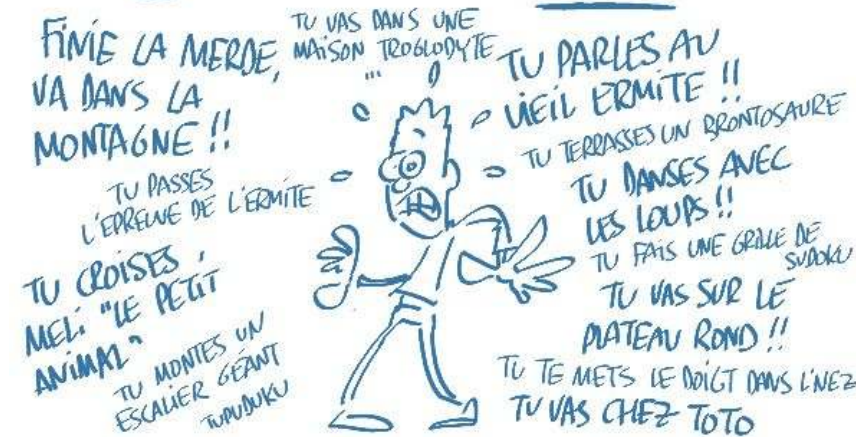 FINIE LA MERDE,
VA DANS LA
MONTAGNE !!
TU VAS DANS UNE
MAISON TROGLODYTE
...
TU PARLES AU
VIEIL ERMITE !!
TU TERRASSES UN BRONTOSAURE
TU PASSES
L'EPREUVE DE L'ERMITE
TU DANSES AVEC
LES LOUPS !!
TU FAIS UNE GRILLE DE
SUDOKU
TU CROISES,
MELI "LE PETIT
ANIMAL"
TU VAS SUR LE
PLATEAU ROND !!
TU MONTES UN
ESCALIER GÉANT
TUDUDUKU
TU TE METS LE DOIGT DANS L'NEZ
TU VAS CHEZ TOTO